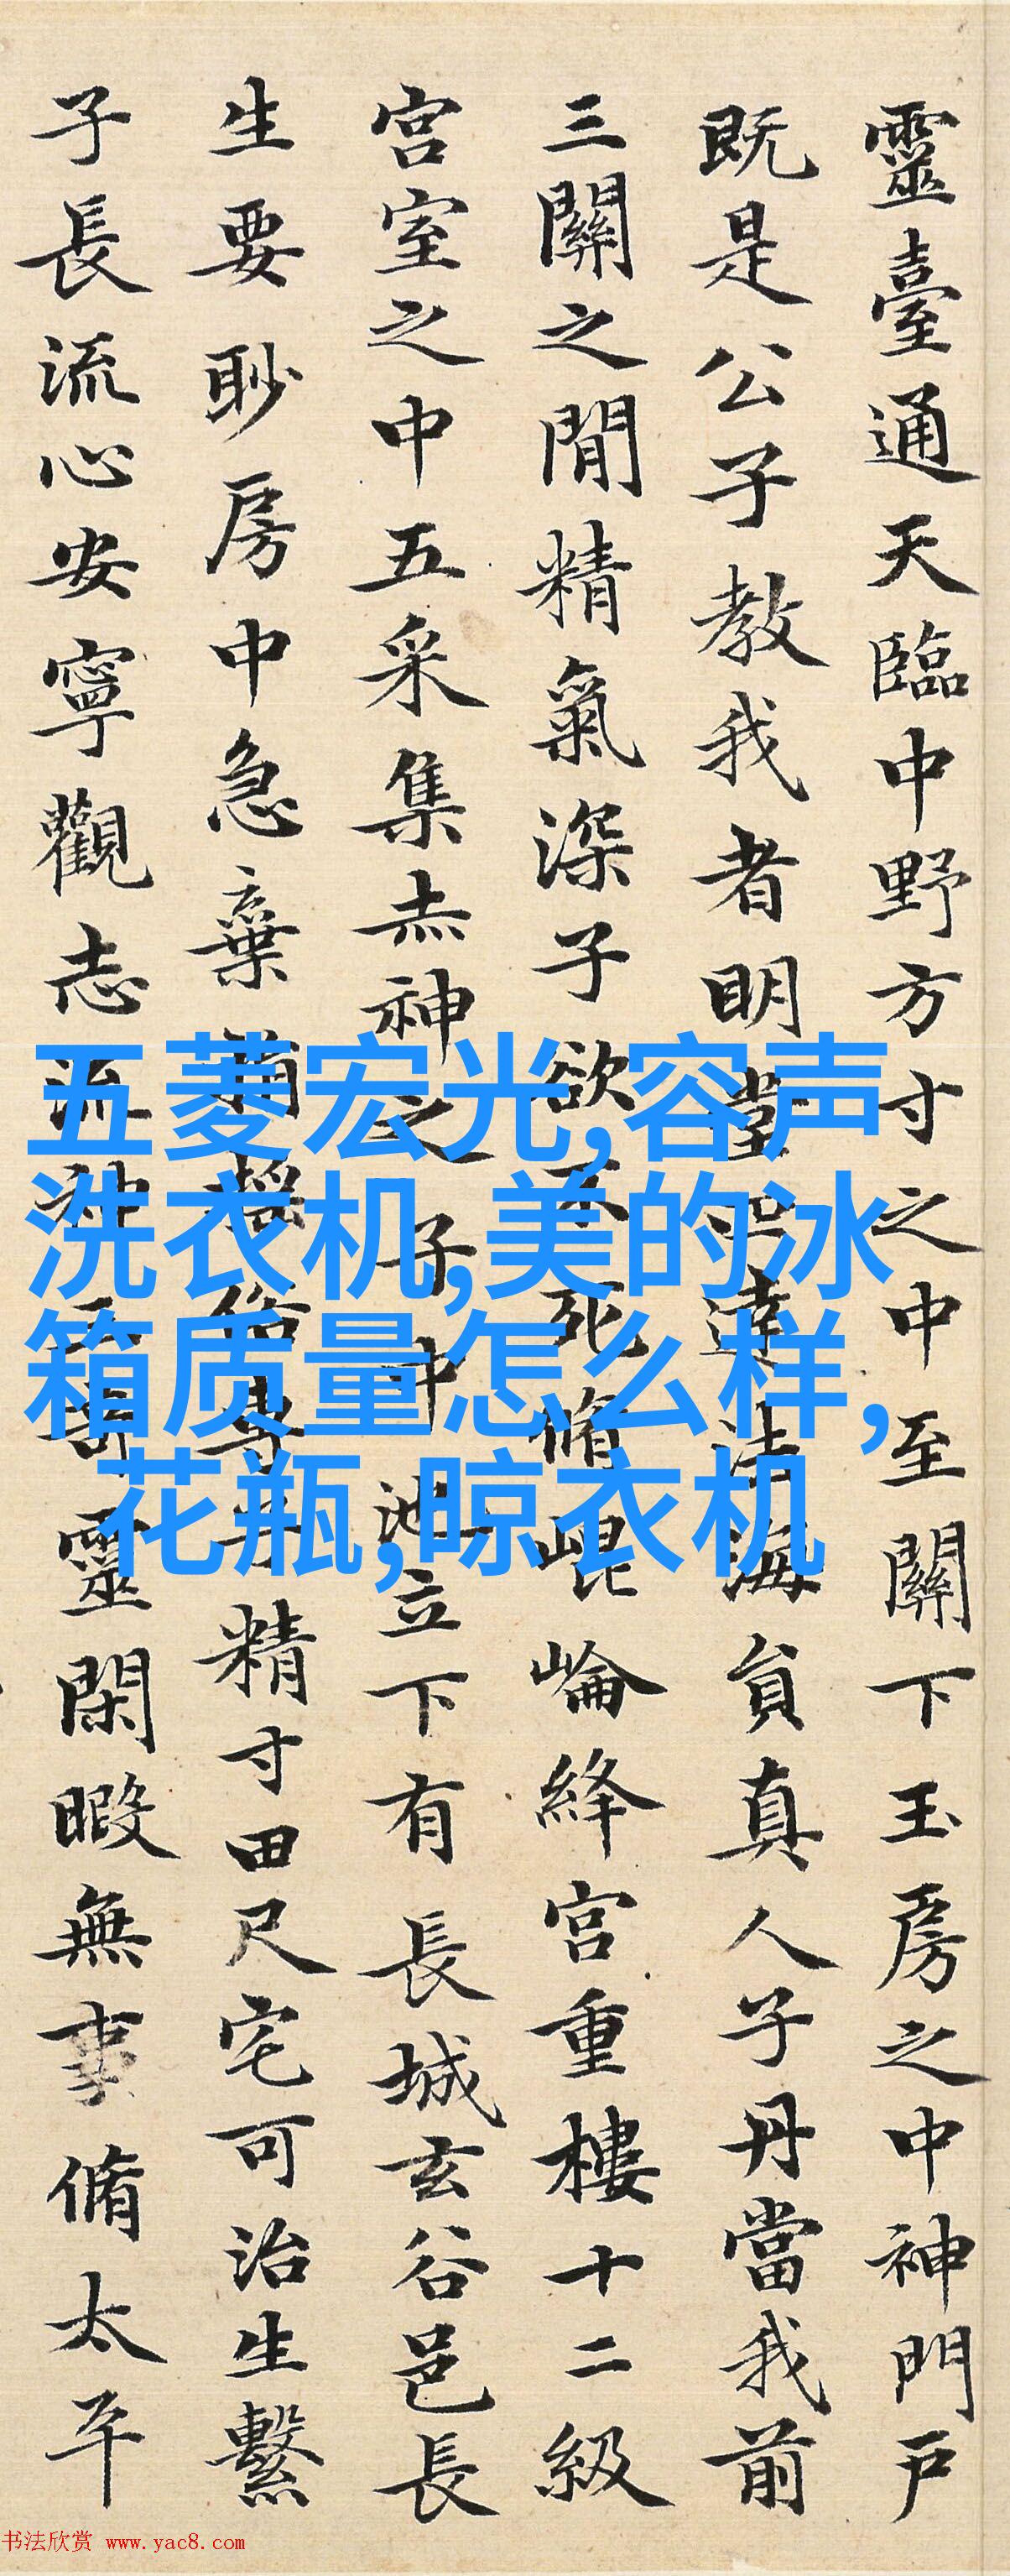 靈臺通天臨中野方寸之中至關下玉房之中神門戶
既是公子教我者明堂四達法海員真人子丹當我前
三關之閒精氣深子欲不死脩崐崘絳宮重樓十二級
宮室之中五采集赤神之子中池立下有長城玄谷邑長
生要眇房中急棄捐搖俗專子精寸田尺宅可治生繫
子長流心安寧觀志流神三奇靈閑暇無事脩太平
五菱宏光,容声
洗衣机,美的冰
箱质量怎么样,
花瓶,晾衣机
书法欣赏 www.yac8.com